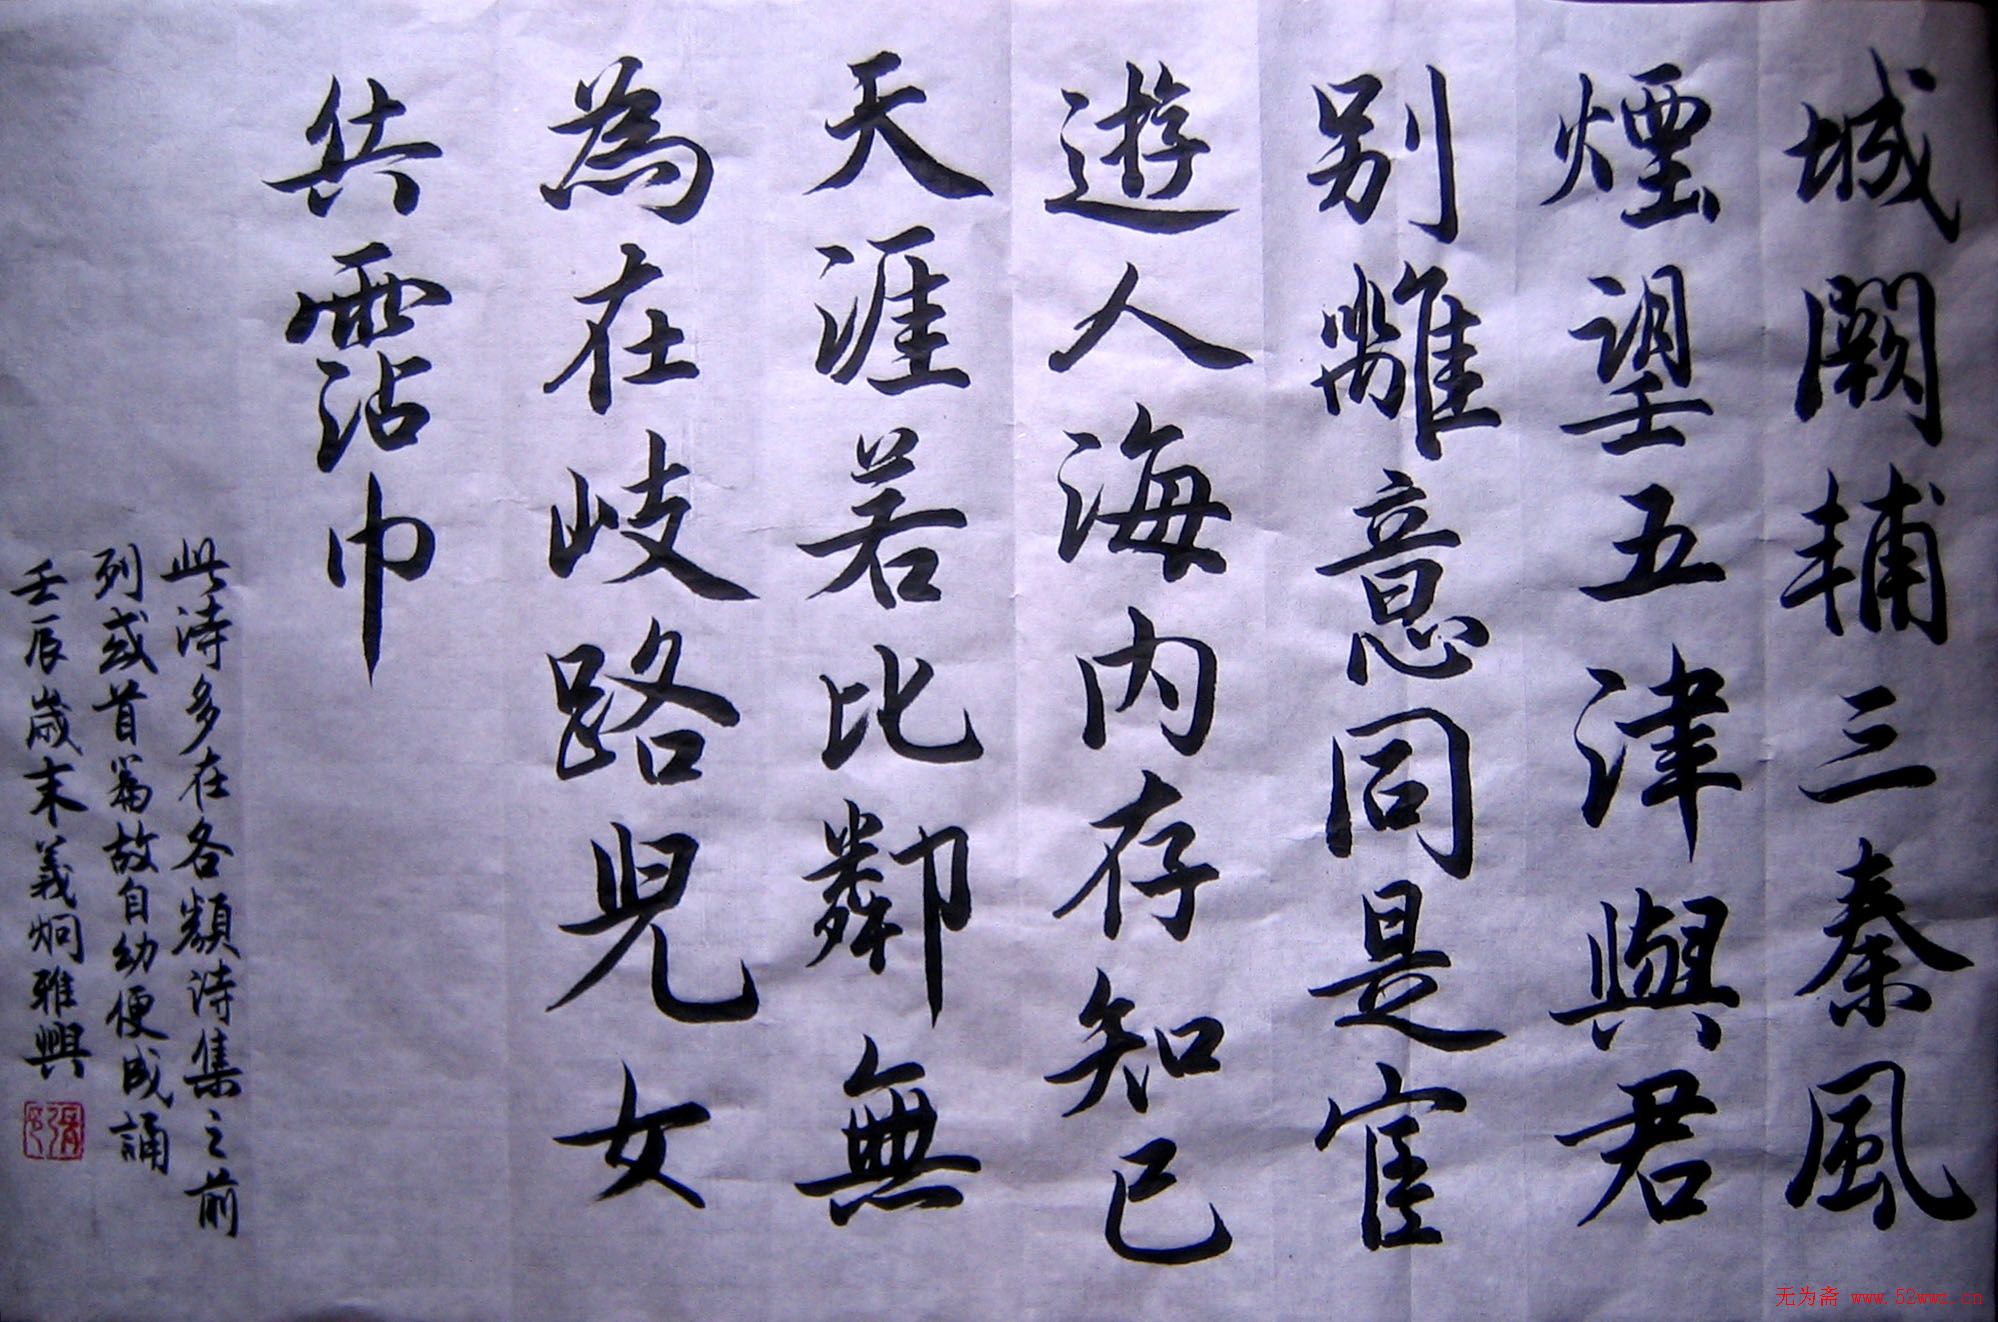 城闕輔三秦風
煙望五津與君
别離意同是宦
遊人海内存知己
天涯若比鄰無
為在岐路兒女
共霑巾
此诗多在各類诗集之前
列或首篇故自幼便成誦
壬辰歲末義炯雅興
无为斋 www.52wwz.cn